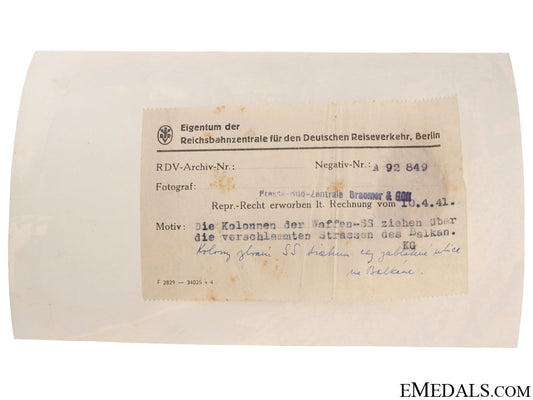 Eigentum der
Reichsbahnzentrale für den Deutschen Reiseverkehr, Berlin
RDV-Archiv-Nr.: Negativ-Nr.: A 92 849
Fotograf:
Presse-Bild-Zentrale Braemer &
Repr.-Recht erworben lt. Rechnung vom 10.4.41.
Motiv: Die Kolonnen der Waffen-SS ziehen über
die verschlammten Strassen des Balkan.
KG
SS
na Balkane.
F 2829 — 34025 * 4
EMEDALS.COM